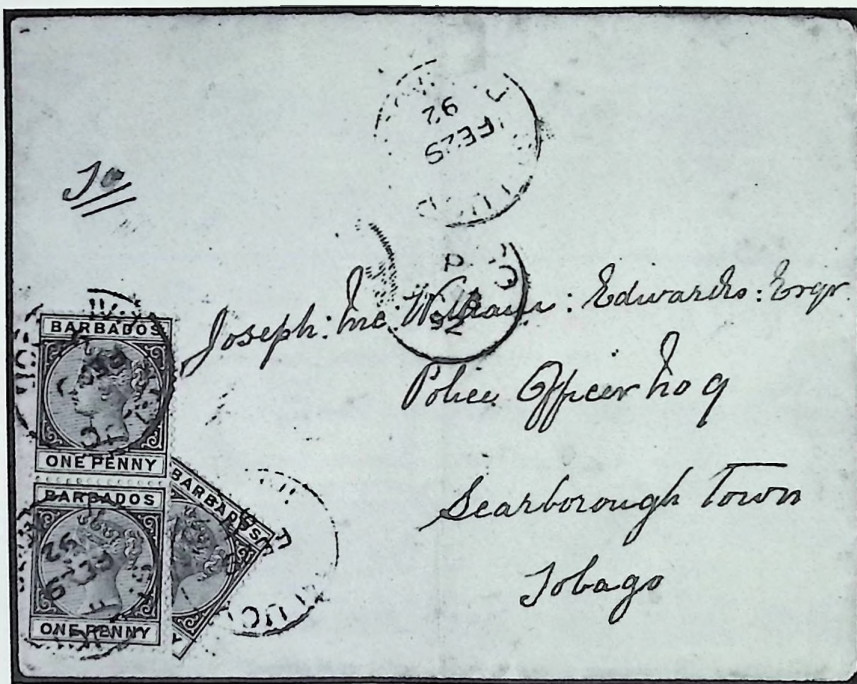 To
Joseph: Inc. William: Edwards: Esqr
Police Officer No 9
Scarborough Town
Tobago
BARBADOS
ONE PENNY
BARBADOS
ONE PENNY
BARBADOS
FE 29
92